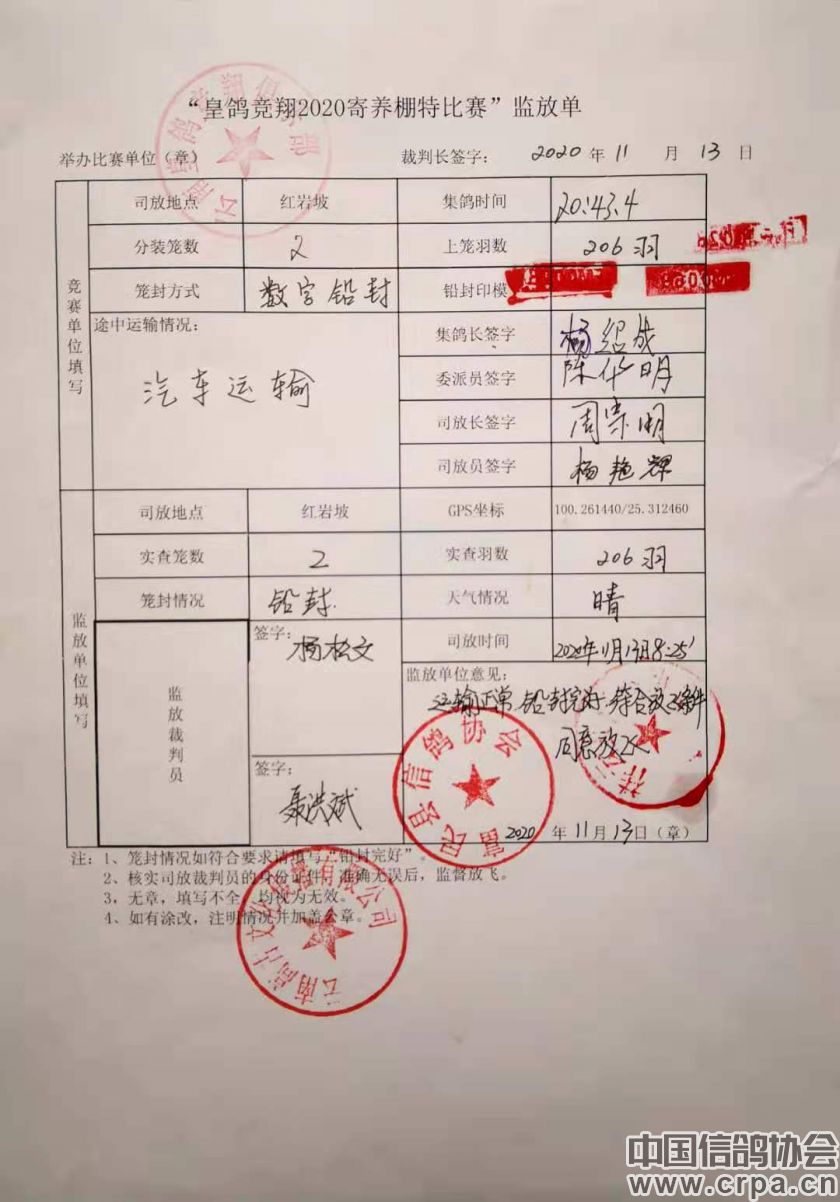 “皇鸽竞翔2020寄养棚特比赛”监放单
举办比赛单位（章） 裁判长签字： 2020 年 11 月 13 日
竞赛单位填写
司放地点 红岩坡 集鸽时间 20:43.4
分装笼数 2 上笼羽数 206羽
笼封方式 数字铅封 铅封印模
途中运输情况：
汽车运输
集鸽长签字 杨绍成
委派员签字 陈华明
司放长签字 周崇明
司放员签字 杨艳辉
监放单位填写
司放地点 红岩坡 GPS坐标 100.261440/25.312460
实查笼数 2 实查羽数 206羽
笼封情况 铅封. 天气情况 晴
监放裁判员
签字： 杨松文
签字： 聂洪斌
司放时间 2020年11月13日8:25'
监放单位意见：
运输正常 铅封完好 符合放飞条件
同意放飞
2020 年11月13日（章）
富民县信鸽协会
云南高古文化传播有限公司
注：1、笼封情况如符合要求请填写“铅封完好”。
2、核实司放裁判员的身份证件，准确无误后，监督放飞。
3，无章，填写不全，均视为无效。
4、如有涂改，注明情况并加盖公章。
中国信鸽协会
www.crpa.cn